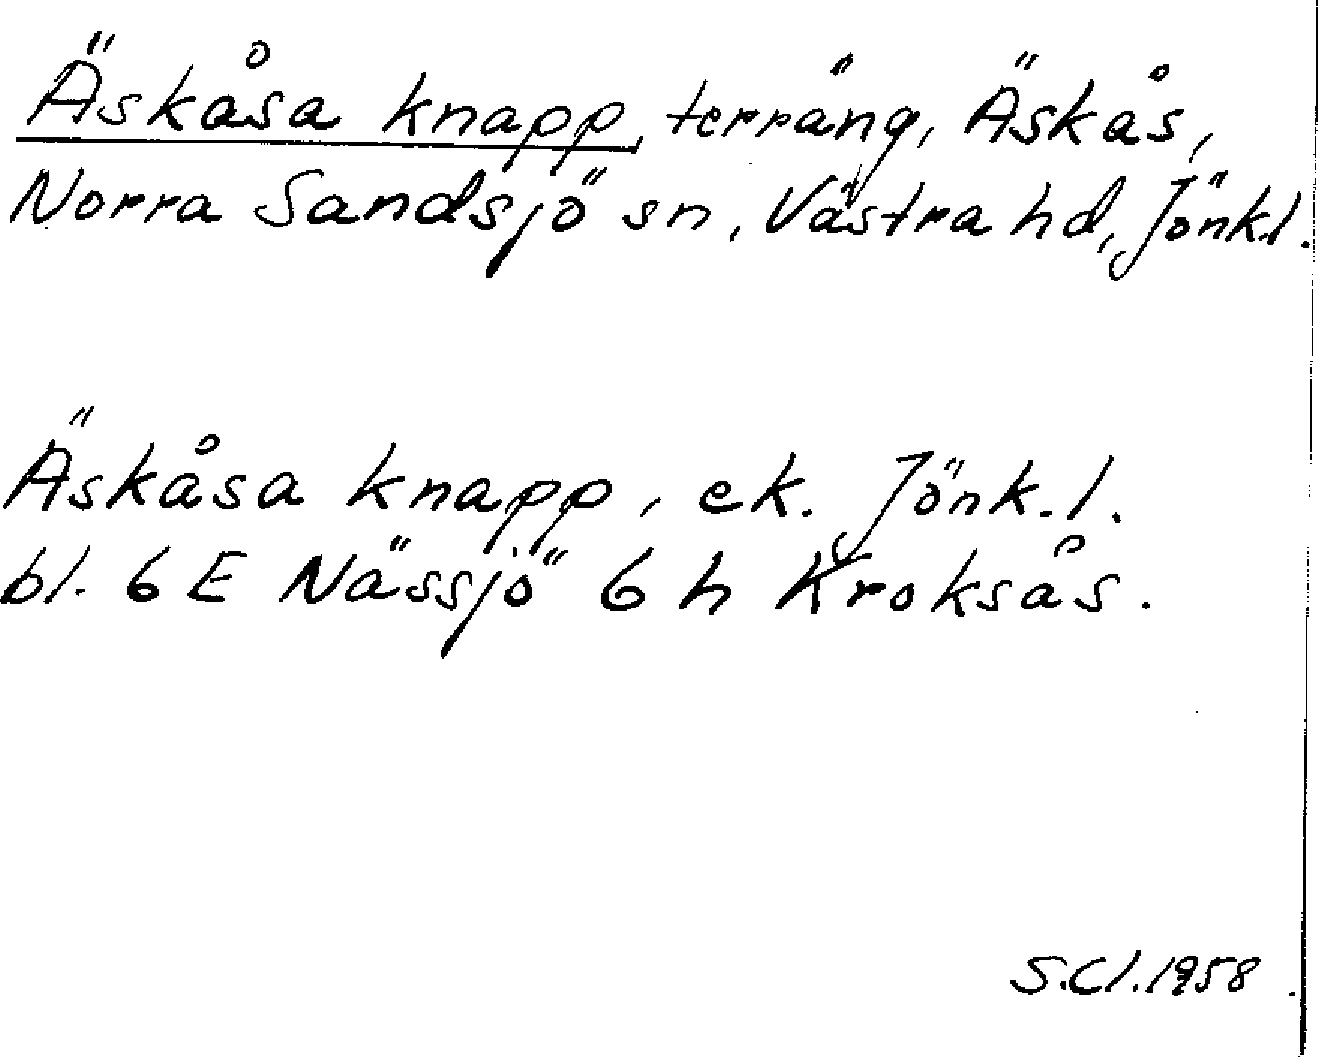 Äskåsa knapp, terräng, Äskås,
Norra Sandsjö sn, Västra hd, Jönk.l.
Äskåsa knapp, ek. Jönk.l.
bl. 6 E Nässjö 6 h Kroksås.
S.Cl.1958